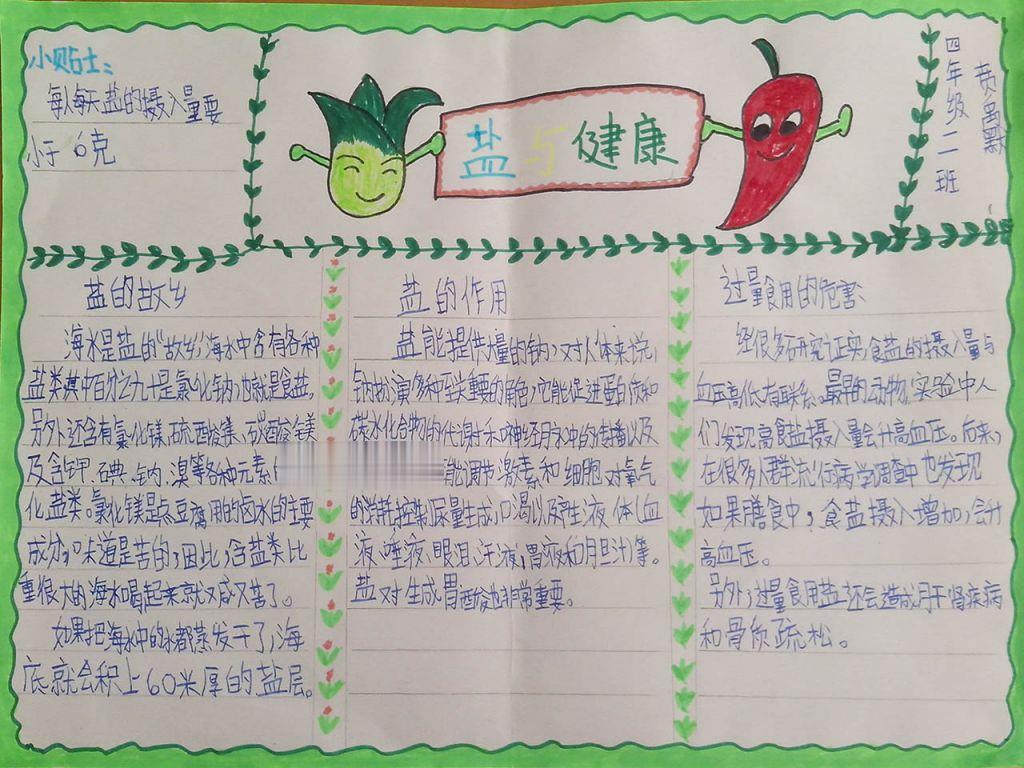 小贴士：
每人每天盐的摄入量要
小于6克
盐与健康
四年级二班
盐的故乡
海水是盐的“故乡”，海水中含有各种
盐类，其中百分之九十是氯化钠，也就是食盐。
另外还含有氯化镁、硫酸镁、碳酸镁
及含钾、碘、钠、溴等各种元素
化盐类。氯化镁是点豆腐用的卤水的主要
成分，味道是苦的，因此，含盐类比
重很大的海水喝起来就又咸又苦了。
如果把海水中的水都蒸发干了，海
底就会积上60米厚的盐层。
盐的作用
盐能提供大量的钠，对人体来说，
钠扮演多种至关重要的角色，它能促进蛋白质和
碳水化合物的代谢和神经脉冲的传播以及
能调节激素和细胞对氧气
的消耗、控制尿量生成，口渴以及产生液体（血
液、唾液、眼泪、汗液、胃液和胆汁）等。
盐对生成胃酸也非常重要。
过量食用的危害
经很多研究证实，食盐的摄入量与
血压高低有联系。最早的动物实验中人
们发现高食盐摄入量会升高血压。后来，
在很多人群流行病学调查中也发现
如果膳食中，食盐摄入增加，会升
高血压。
另外，过量食用盐还会造成肝肾疾病
和骨质疏松。